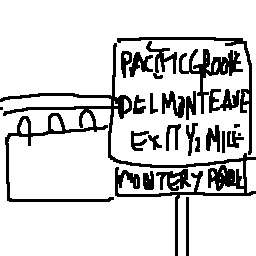 PACIFIC GROVE
DEL MONTE AVE
EXIT 1/2 MILE
MONTERY PARK